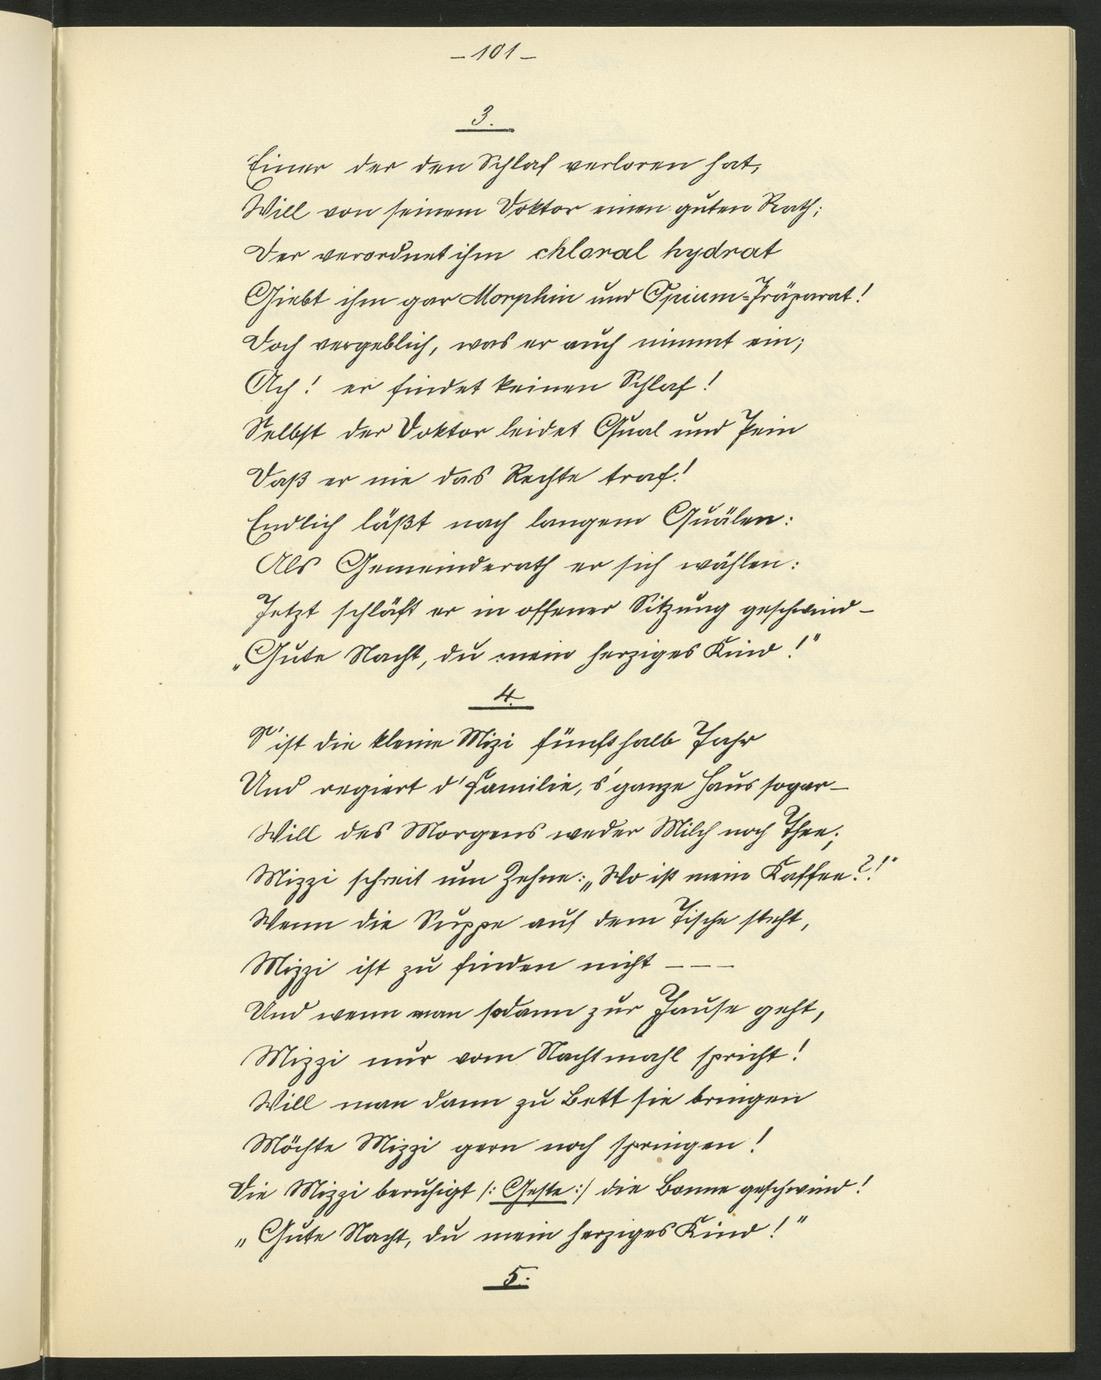 – 101 –
3.
Einer der den Schlaf verloren hat,
Will von seinem Doktor einen guten Rath;
Der verordnet ihm chloral hydrat
Giebt ihm gar Morphin und Opium=Präparat!
Doch vergeblich, was er auch nimmt ein;
Ach! er findet keinen Schlaf!
Selbst der Doktor leidet Qual und Pein
Daß er nie das Rechte traf!
Endlich läßt nach langem Quälen:
Als Gemeinderath er sich wählen:
Jetzt schläft er in offener Sitzung geschwind –
„Gute Nacht, du mein herziges Kind!"
4.
S' ist die kleine Mizi fünfthalb Jahr
Und regiert d' Familie, s' ganze Haus sogar –
Will des Morgens weder Milch noch Thee;
Mizzi schreit um Zehne: „Wo ist mein Kaffee?!"
Wenn die Suppe auf dem Tische steht,
Mizzi ist zu finden nicht – – –
Und wenn man sodann zur Jause geht,
Mizzi nur vom Nachtmahl spricht!
Will man dann zu Bett sie bringen
Möchte Mizzi gern noch springen!
Die Mizzi beruhigt /: Geste :/ die Bonne geschwind!
„Gute Nacht, du mein herziges Kind!"
5.